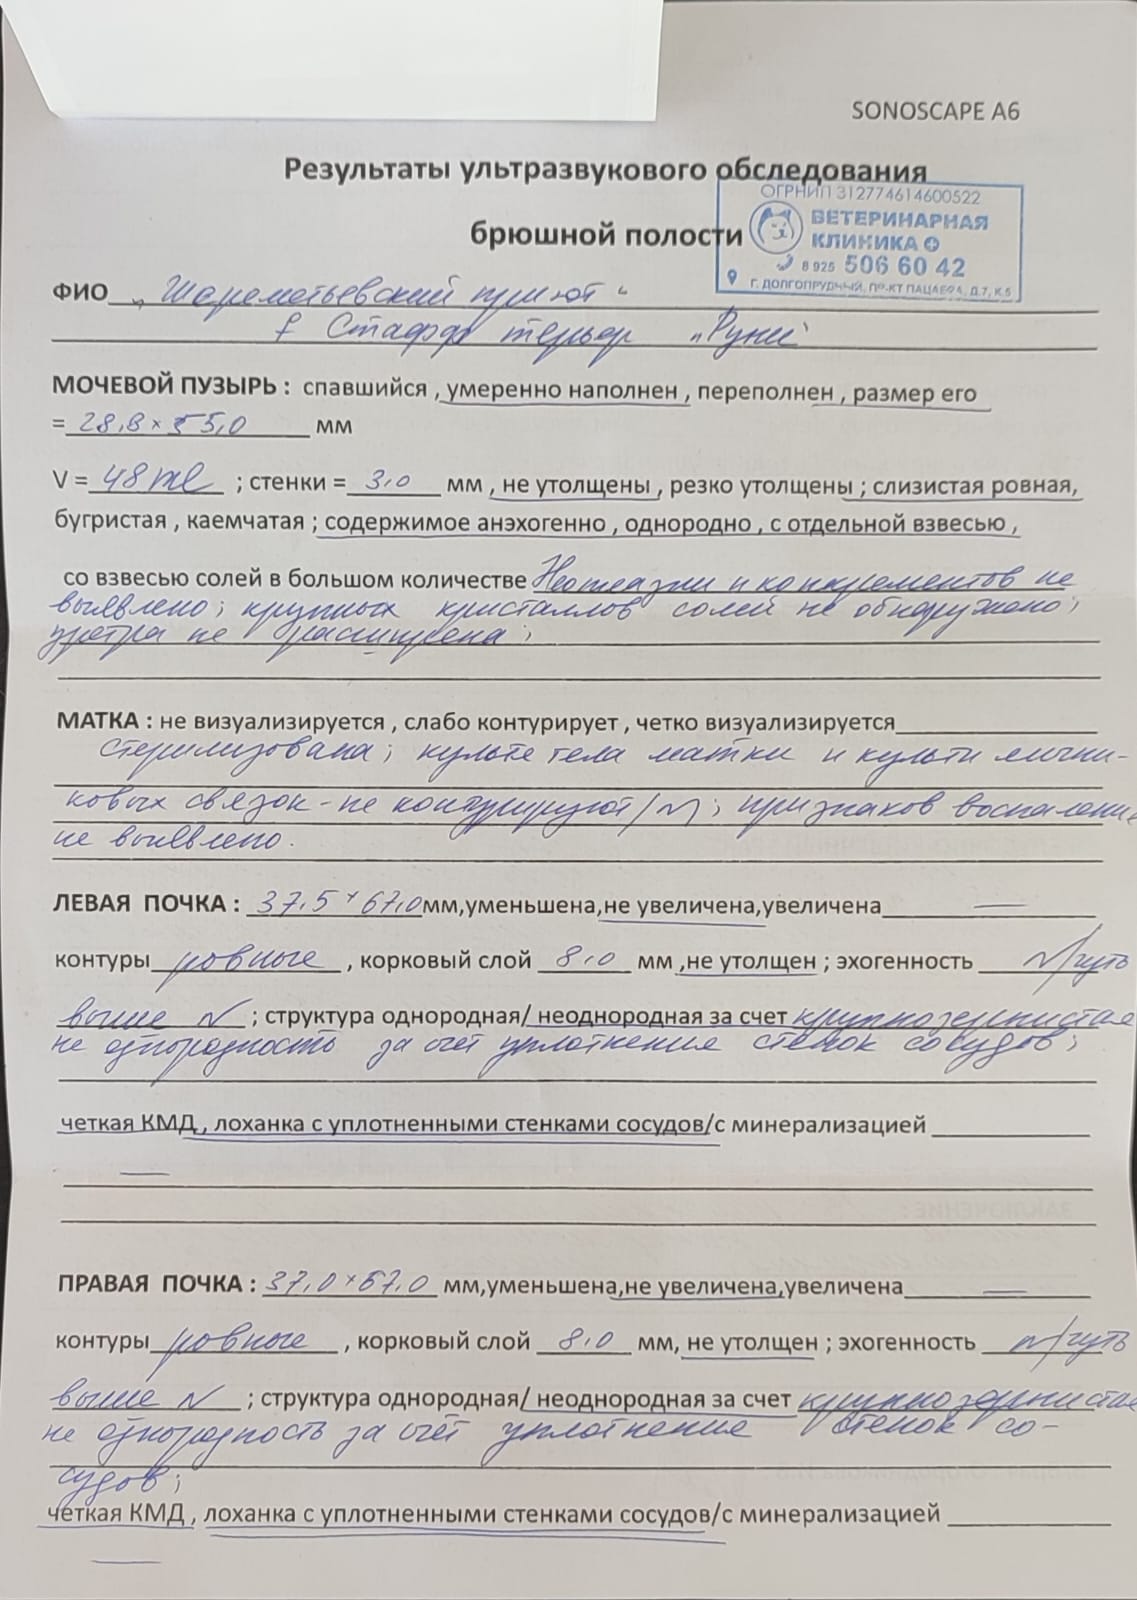 SONOSCAPE A6
Результаты ультразвукового обследования
брюшной полости
ОГРНИП 312774614600522
ВЕТЕРИНАРНАЯ
КЛИНИКА
8 925 506 60 42
Г. ДОЛГОПРУДНЫЙ, ПР-КТ ПАЦАЕВА, Д.7, К.5
ФИО „Шереметьевский приют“
f Стафф терьер „Руни“
МОЧЕВОЙ ПУЗЫРЬ : спавшийся , умеренно наполнен , переполнен , размер его
= 28,8 × 55,0 мм
V = 48 ml ; стенки = 3,0 мм , не утолщены , резко утолщены ; слизистая ровная,
бугристая , каемчатая ; содержимое анэхогенно , однородно , с отдельной взвесью ,
со взвесью солей в большом количестве Неоплазии и конкрементов не
выявлено; крупных кристаллов солей не обнаружено;
уретра не расширена;
МАТКА : не визуализируется , слабо контурирует , четко визуализируется
стерилизована; культя тела матки и культи яични-
ковых связок - не контурируют/N; признаков воспаления
не выявлено.
ЛЕВАЯ ПОЧКА : 37,5 × 67,0 мм,уменьшена,не увеличена,увеличена —
контуры ровные , корковый слой 8,0 мм ,не утолщен ; эхогенность N/чуть
выше N ; структура однородная/ неоднородная за счет крупнозернистая
не однородность за счёт уплотнения стенок сосудов;
четкая КМД , лоханка с уплотненными стенками сосудов/с минерализацией
—
ПРАВАЯ ПОЧКА : 37,0 × 67,0 мм,уменьшена,не увеличена,увеличена —
контуры ровные , корковый слой 8,0 мм, не утолщен ; эхогенность N/чуть
выше N ; структура однородная/ неоднородная за счет крупнозернистая
не однородность за счёт уплотнения стенок со-
судов;
четкая КМД , лоханка с уплотненными стенками сосудов/с минерализацией
—